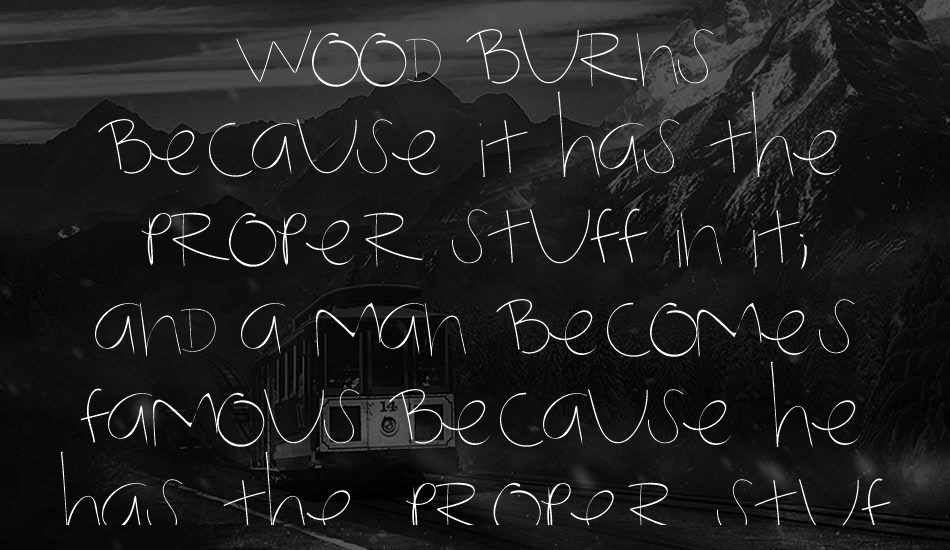 WOOD BURNS
Because it has the
PROPER STUFF in it;
AND a man Becomes
famous Because he
has the PROPER STUF
14